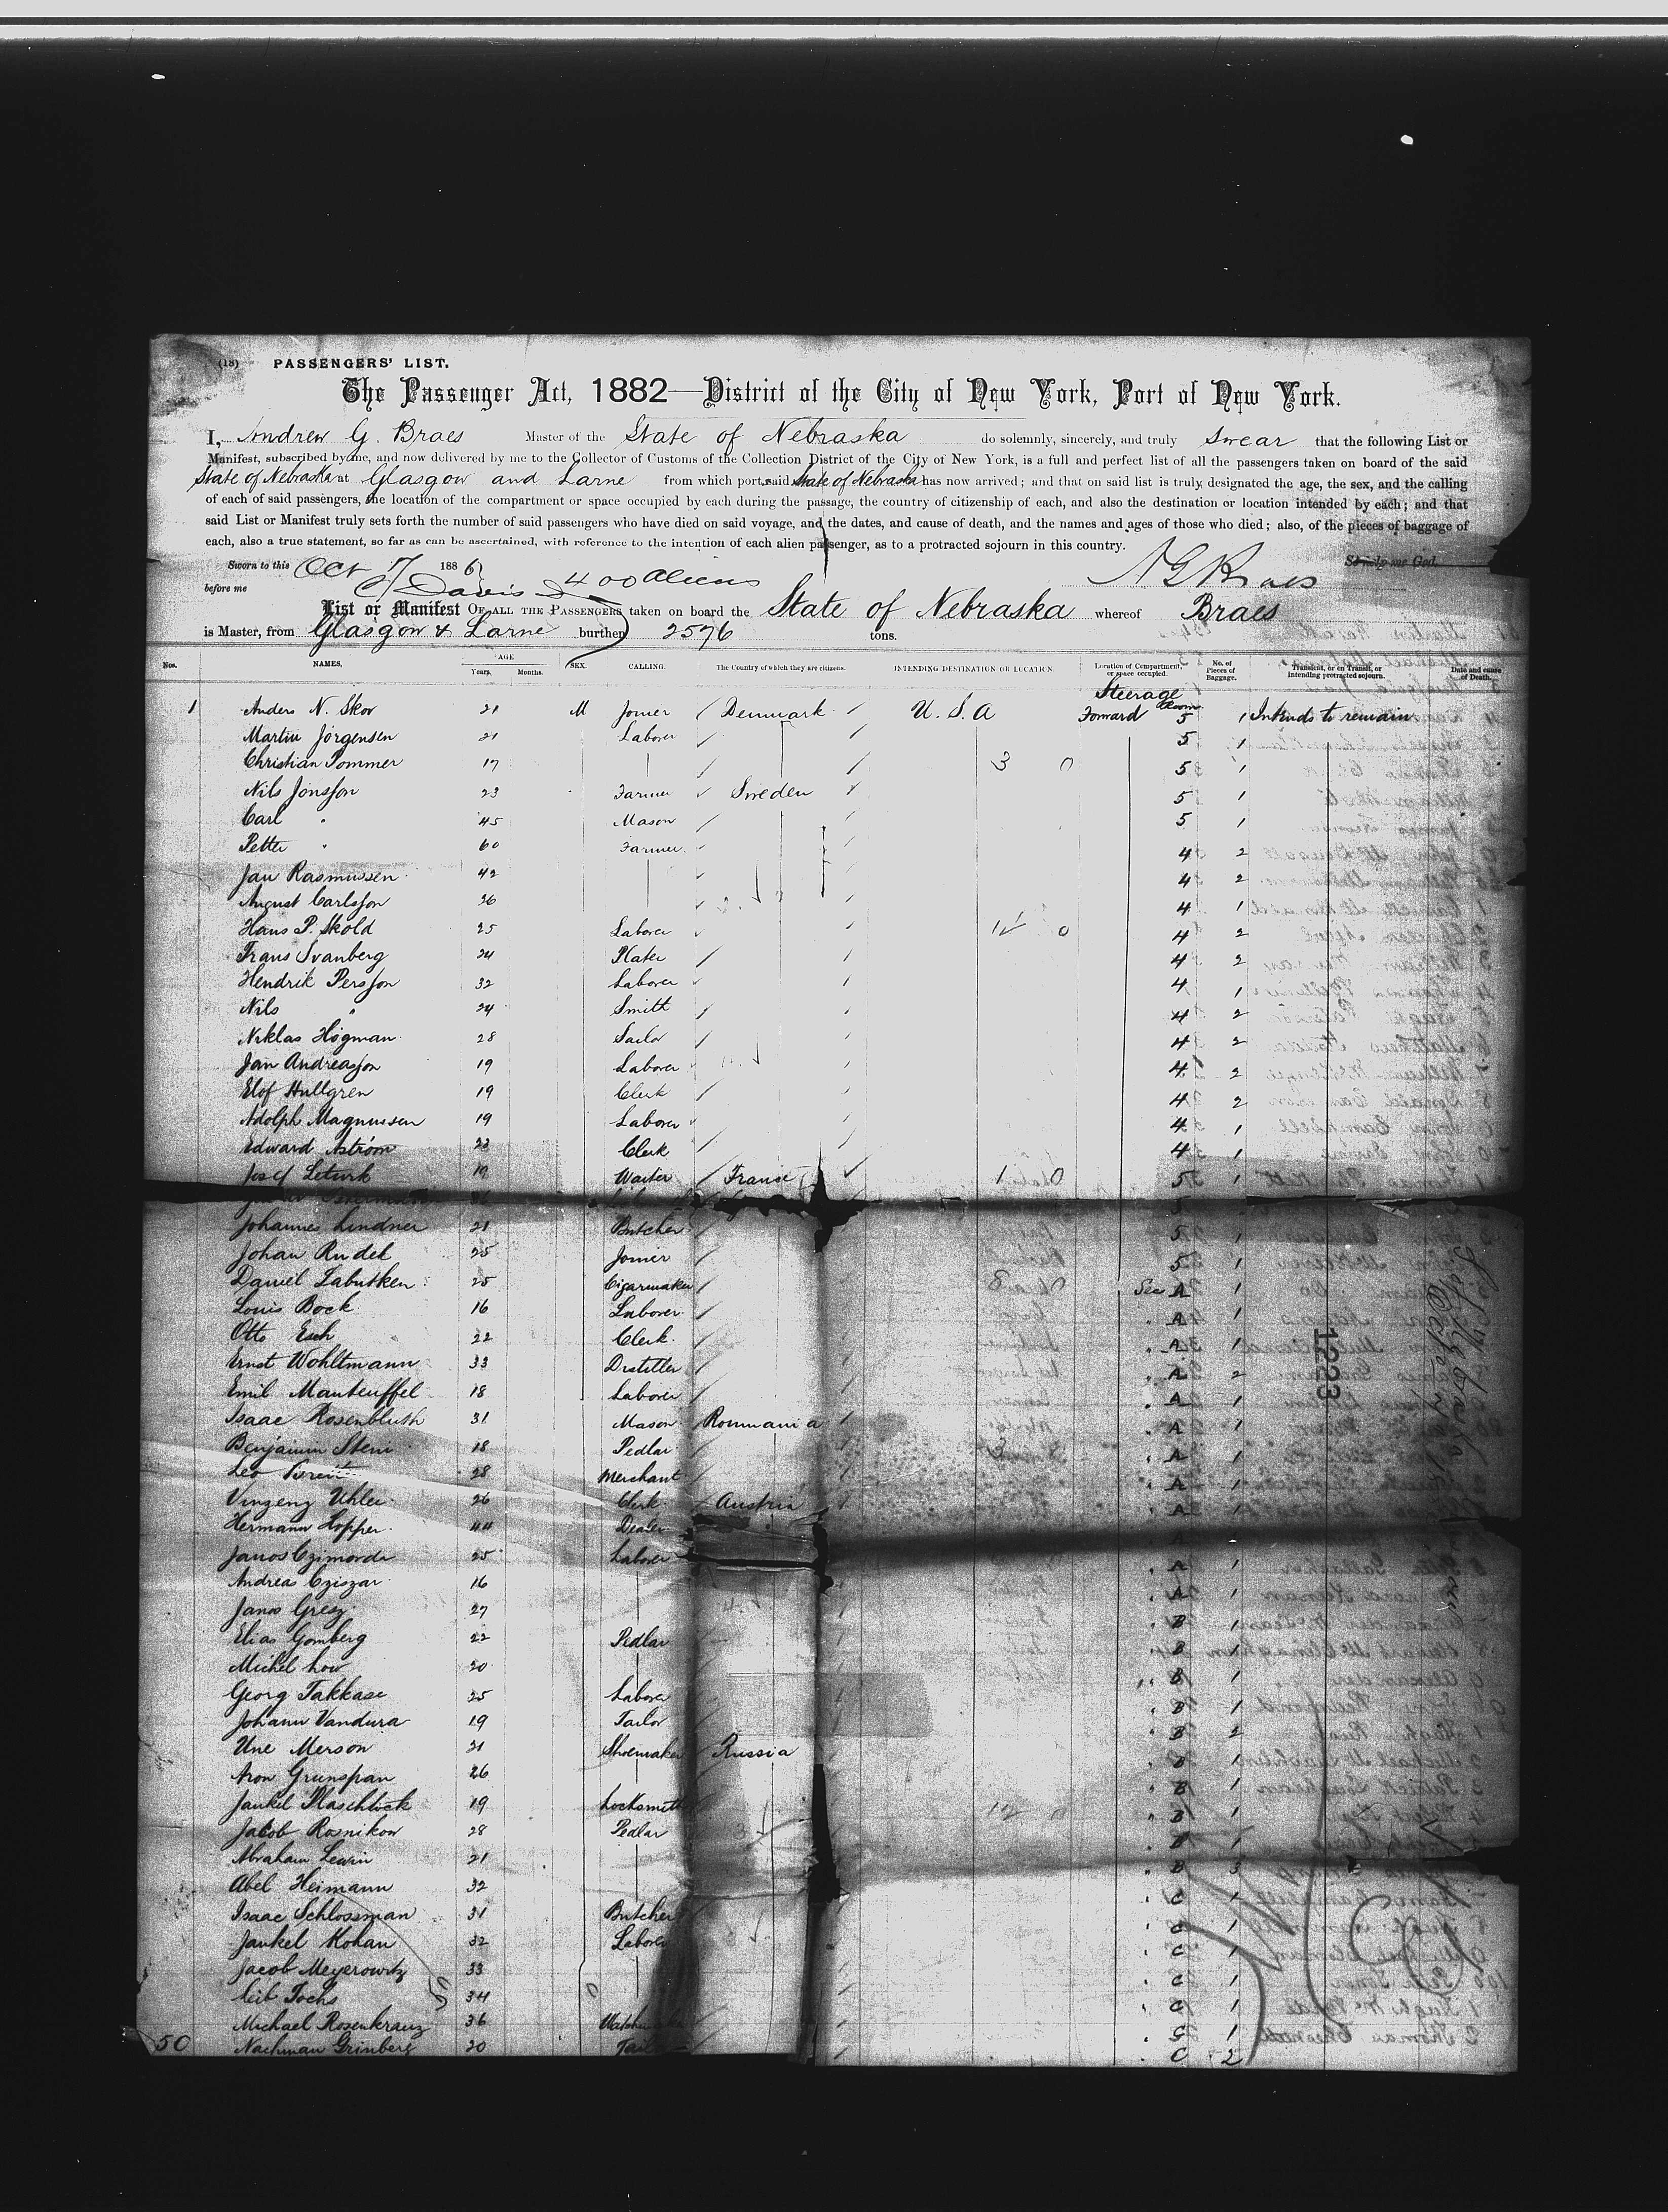 (18) PASSENGERS' LIST.
The Passenger Act, 1882—District of the City of New York, Port of New York.
I, Andrew G. Braes Master of the State of Nebraska do solemnly, sincerely, and truly Swear that the following List or
Manifest, subscribed by me, and now delivered by me to the Collector of Customs of the Collection District of the City of New York, is a full and perfect list of all the passengers taken on board of the said
State of Nebraska at Glasgow and Larne from which port said State of Nebraska has now arrived; and that on said list is truly designated the age, the sex, and the calling
of each of said passengers, the location of the compartment or space occupied by each during the passage, the country of citizenship of each, and also the destination or location intended by each; and that
said List or Manifest truly sets forth the number of said passengers who have died on said voyage, and the dates, and cause of death, and the names and ages of those who died; also, of the pieces of baggage of
each, also a true statement, so far as can be ascertained, with reference to the intention of each alien passenger, as to a protracted sojourn in this country.
Sworn to this Oct 7 1886 So help me God.
before me Davis 400 Aliens A G Braes
List or Manifest OF ALL THE PASSENGERS taken on board the State of Nebraska whereof Braes
is Master, from Glasgow & Larne burthen 2576 tons.
Nos. NAMES. AGE Years. Months. SEX. CALLING. The Country of which they are citizens. INTENDING DESTINATION OR LOCATION Location of Compartment, or space occupied. No. of Pieces of Baggage. Transient, or on Transit, or intending protracted sojourn. Date and cause of Death.
Steerage
1 Anders N. Skov 21 M Joiner Denmark U.S.A Forward Room 5 1 Intends to remain
Martin Jörgensen 21 Laborer 5 1
Christian Pommer 17 3 0 5 1
Nils Jönsson 23 Farmer Sweden 5 1
Carl " 45 Mason 5 1
Petter " 60 Farmer 4 2
Jan Rasmussen 42 4 2
August Carlsson 26 4 1
Hans P. Skold 25 Laborer 14 0 4 2
Frans Svanberg 24 Plater 4 2
Hendrik Persson 32 Laborer 4 1
Nils " 24 Smith 4 2
Niklas Högman 28 Sailor 4 2
Jan Andreasson 19 Laborer 4 2
Elof Hullgren 19 Clerk 4 2
Adolph Magnussen 19 Laborer 4 1
Edward Aström 23 Clerk 4 1
Josef Leturk 19 Waiter France 1 0 5 1
Johannes Lindner 21 Butcher 5 1
Johan Rudek 25 Joiner 5 1
Daniel Labutken 25 Cigarmaker 8 0 Sec A 1
Louis Bock 16 Laborer A 1
Otto Esch 22 Clerk A 1
Ernst Wohltmann 33 Distiller A 2
Emil Manteuffel 18 Laborer A 1
Isaac Rosenbluth 31 Mason Roumania A 1
Benjamin Stein 18 Pedlar 3 A 1
Leo 28 Merchant A 1
Vinzenz Uhler 26 Clerk Austria A 1
Hermann Hopper 44 Dealer
Janos Czimorda 25 Laborer A 1
Andreas Cziszar 16 A 1
Janos Gresz 27 B 1
Elias Gomberg 22 Pedlar B 1
Michel Low 20 B 1
Georg Takkase 25 Laborer B 1
Johann Vandura 19 Tailor B 2
Une Merson 21 Shoemaker Russia B 1
Aron Grunspan 26 B 1
Jankel Plaschtock 19 Locksmith 12 0 B 1
Jacob Rosnikow 28 Pedlar B 1
Abraham Lewin 21 B 3
Abel Heimann 32 C 1
Isaac Schlossman 31 Butcher C 1
Jankel Kohan 32 Laborer C 1
Jacob Meyerowitz 33 C 1
Leib Tochs 34 C 1
Michael Rosenkranz 36 C 1
50 Nachman Grinberg 20 C 2
1223